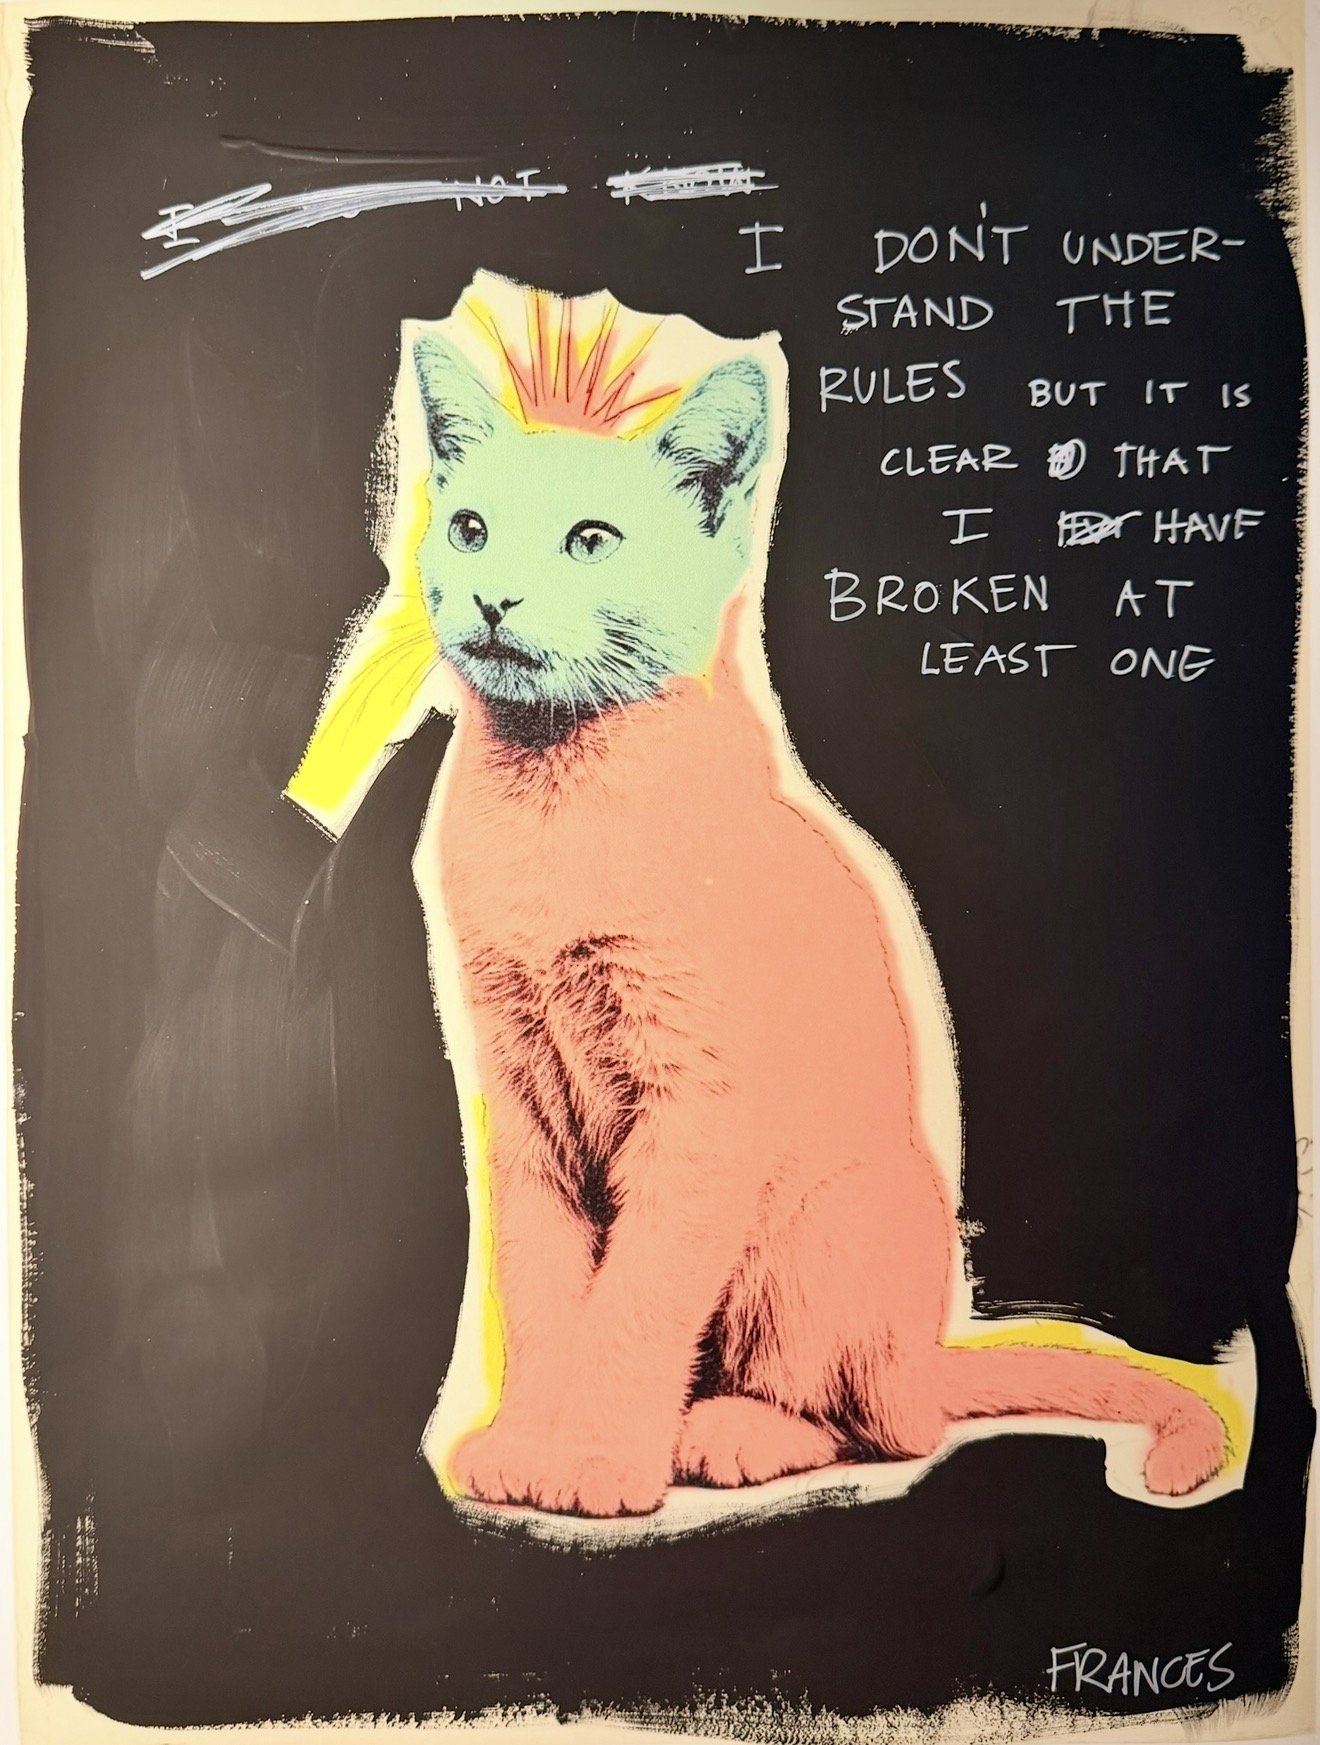 I NOT
I DON'T UNDER-
STAND THE
RULES BUT IT IS
CLEAR THAT
I HAVE
BROKEN AT
LEAST ONE
FRANCES